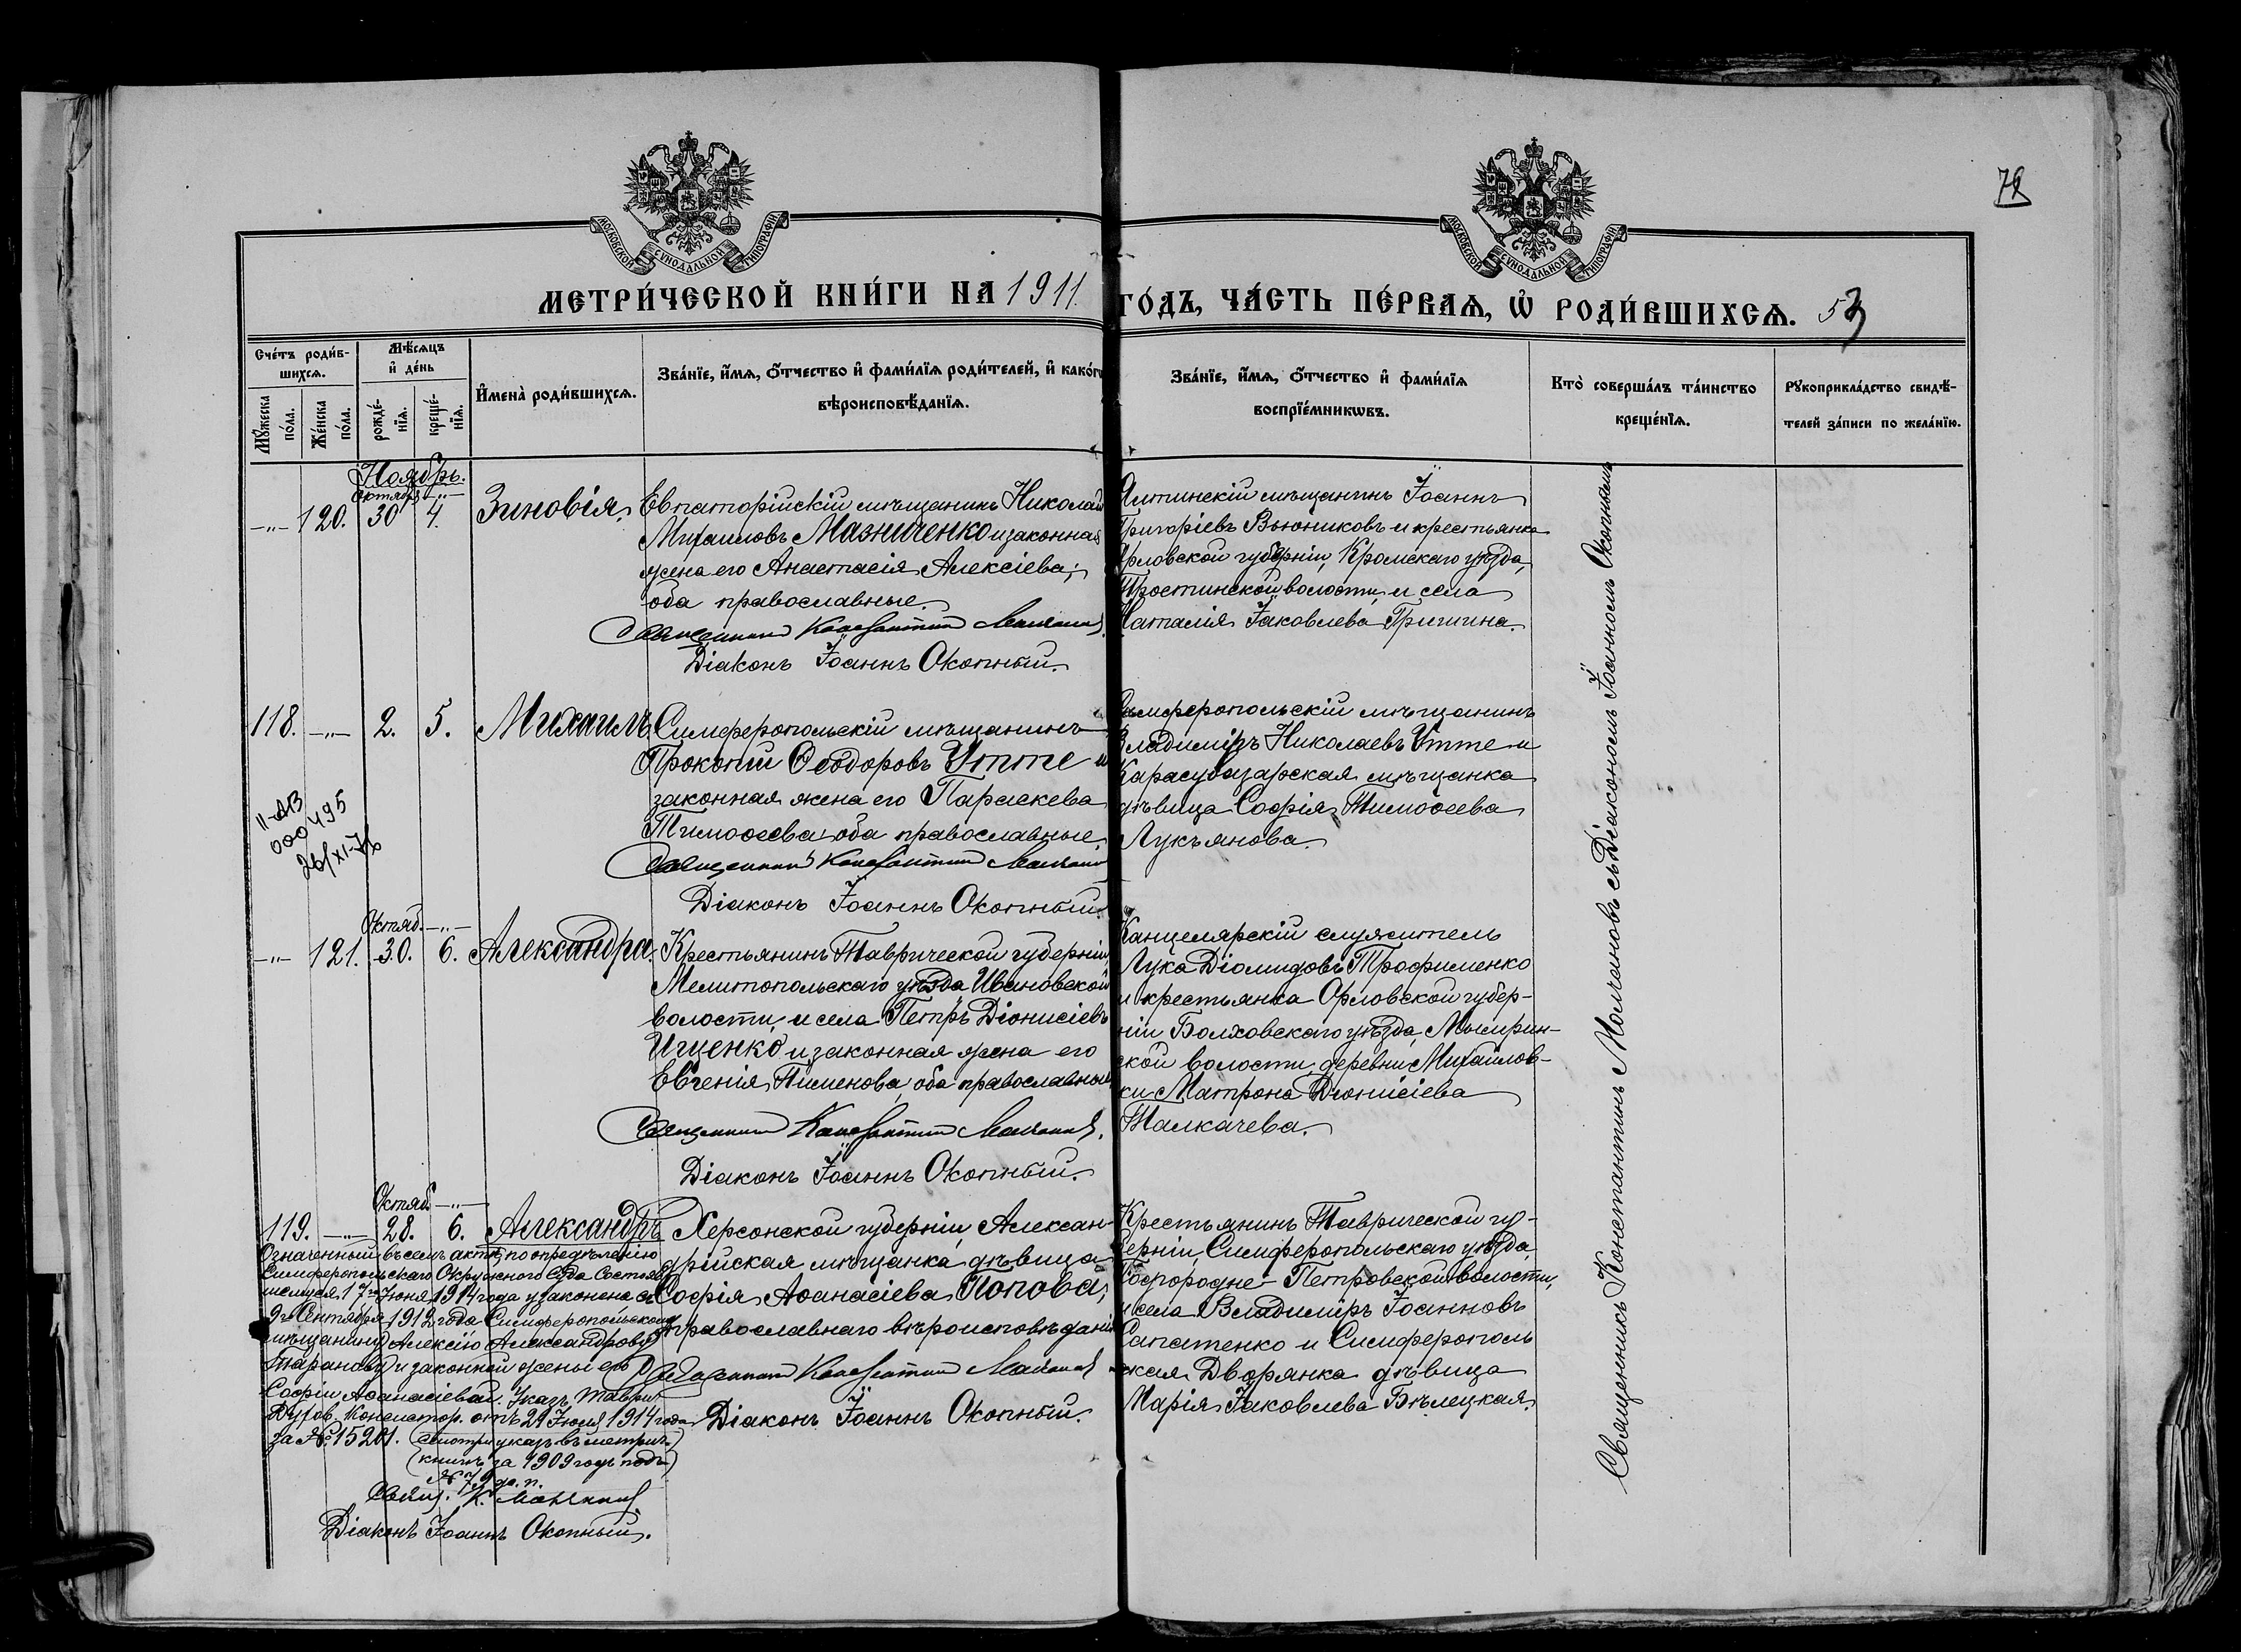 МОСКОВСКОЙ СѴНОДАЛЬНОЙ ТИПОГРАФІИ
МОСКОВСКОЙ СѴНОДАЛЬНОЙ ТИПОГРАФІИ
МЕТРИ́ЧЕСКОЙ КНИ́ГИ НА 1911.
ГО́ДЪ, ЧА́СТЬ ПЕ́РВАѦ, Ѽ РОДИ́ВШИХСѦ.
Сче́тъ роди́в-
шихсѧ.
Мѣ́сѧцъ
и҆ де́нь
Мꙋ́жеска
по́ла.
Же́нска
по́ла.
рожде́-
нїѧ.
креще́-
нїѧ.
И҆мена̀ роди́вшихсѧ.
Зва́нїе, и҆́мѧ, ѻ҆́тчество и҆ фами́лїѧ роди́телей, и҆ како́гѡ
вѣроисповѣ́данїѧ.
Зва́нїе, и҆́мѧ, ѻ҆́тчество и҆ фами́лїѧ
воспрїе́мникѡвъ.
Кто̀ соверша́лъ та́инство
креще́нїѧ.
Рꙋкоприкла́дство свидѣ́-
телей за́писи по жела́нїю.
Ноябрь.
Октября -„-
-„- 120. 30 4. Зиновія.
Евпаторійскій мѣщанинъ Николай
Михаиловъ Мазниченко и законная
жена его Анастасія Алексіева;
оба православные.
Священникъ Константинъ Молчановъ.
Діаконъ Іоаннъ Окопный.
Ялтинскій мѣщанинъ Іоаннъ
Григоріевъ Вьюниковъ и крестьянка
Орловской губерніи, Кромскаго уѣзда,
волости и села
Наталія Іаковлева Гришина.
118. -„- 2. 5. Михаилъ
Симферопольскій мѣщанинъ
Прокопій Ѳеодоровъ Утте и
законная жена его Параскева
Тимоѳеева; оба православные.
Священникъ Константинъ Молчановъ
Діаконъ Іоаннъ Окопный.
Симферопольскій мѣщанинъ
Владиміръ Николаевъ Утте и
Карасубазарская мѣщанка
дѣвица Софія Тимоѳеева
Лукъянова.
II-АВ
000495
26/XI-76
Октяб. -„-
-„- 121. 30. 6. Александра
Крестьянинъ Таврической губерніи,
Мелитопольскаго уѣзда Ивановской
волости, и села Петръ Діонисіевъ
Ищенко и законная жена его
Евгенія Пименова, оба православные
Священникъ Константинъ Молчановъ.
Діаконъ Іоаннъ Окопный.
Канцелярскій служитель
Лука Діомидовъ Трофименко
и крестьянка Орловской губер-
ніи Болховскаго уѣзда,
ской волости, деревни Михайлов-
ки Матрона Діонисіева
Талкачева.
Октяб. -„-
119. -„- 28. 6. Александръ
Херсонской губерніи, Алексан-
дрійская мѣщанка, дѣвица
Софія Аѳанасіева Попова,
православнаго вѣроисповѣданія
Священникъ Константинъ Молчановъ
Діаконъ Іоаннъ Окопный.
Крестьянинъ Таврической гу-
берніи, Симферопольскаго уѣзда,
Петровской волости,
и села Владиміръ Іоанновъ
Сапатенко и Симферополь
ская Дворянка дѣвица
Марія Іаковлева Бѣлецкая.
Означенный въ семъ актѣ, по опредѣленію
Симферопольскаго Окружного Суда состояв
шемуся 17го Іюня 1914 года узаконенъ съ
9го Сентября 1912 года Симферопольскому
мѣщанину Алексію Александрову
Таранову и законной жены его
Софіи Аѳанасіевой. Указъ Таврич.
Духов. Консистор. отъ 29 Іюля 1914 года
за № 15201. (Смотри указъ въ метрич.)
(книгѣ за 1909 годъ подъ)
№ 79
Свящ. К. Молчановъ.
Діаконъ Іоаннъ Окопный.
Священникъ Константинъ Молчановъ съ Діакономъ Іоанномъ Окопнымъ